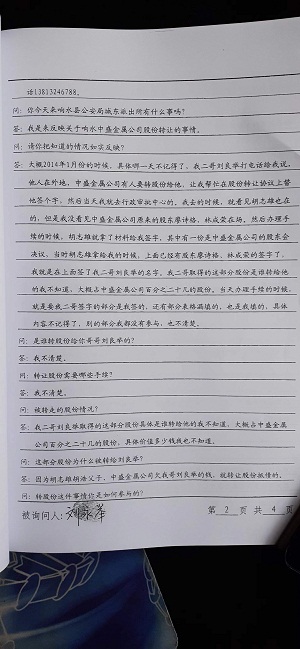 话13813246788。
问：你今天来响水县公安局城东派出所有什么事吗？
答：我是来反映关于响水中盛金属公司股份转让的事情。
问：请你把知道的情况如实反映？
答：大概2014年1月份的时候，具体哪一天不记得了，我二哥刘良举打电话给我说，
他人在外地，中盛金属公司有人要转股份给他，让我帮忙在股份转让协议上替
他签个字，然后当天我就去行政审批中心的，去的时候，就看见胡志雄也在
的，但是我没看见中盛金属公司原来的股东廖诗格、林成荣在场，然后办理手
续的时候，胡志雄就拿了材料给我签字，其中有一份是中盛金属公司的股东会
决议，当时胡志雄拿给我的时候，上面已经有股东廖诗格、林成荣的签字了，
我就是在上面签了我二哥刘良举的名字，我二哥取得的这部分股份是谁转给他
的我不知道，大概占中盛金属公司百分之二十几的股份，当天办理手续的时候，
就是要我二哥签字的部分是我签的，还有部分表格漏填的，也是我填的，具体
内容不记得了，别的部分我都没有参与，也不清楚。
问：是谁转股份给你哥哥刘良举的？
答：我不清楚。
问：转让股份需要哪些手续？
答：我不清楚。
问：被转走的股份情况？
答：我二哥刘良举取得的这部分股份具体是谁转给他的我不知道，大概占中盛金属
公司百分之二十几的股份，具体价值多少钱我也不知道。
问：这部分股份为什么被转给刘良举？
答：因为胡志雄胡浩父子，中盛金属公司欠我哥刘良举的钱，就转让股份抵债的。
问：转股份这件事情你是如何参与的？
被询问人：
第 2 页 共 4 页